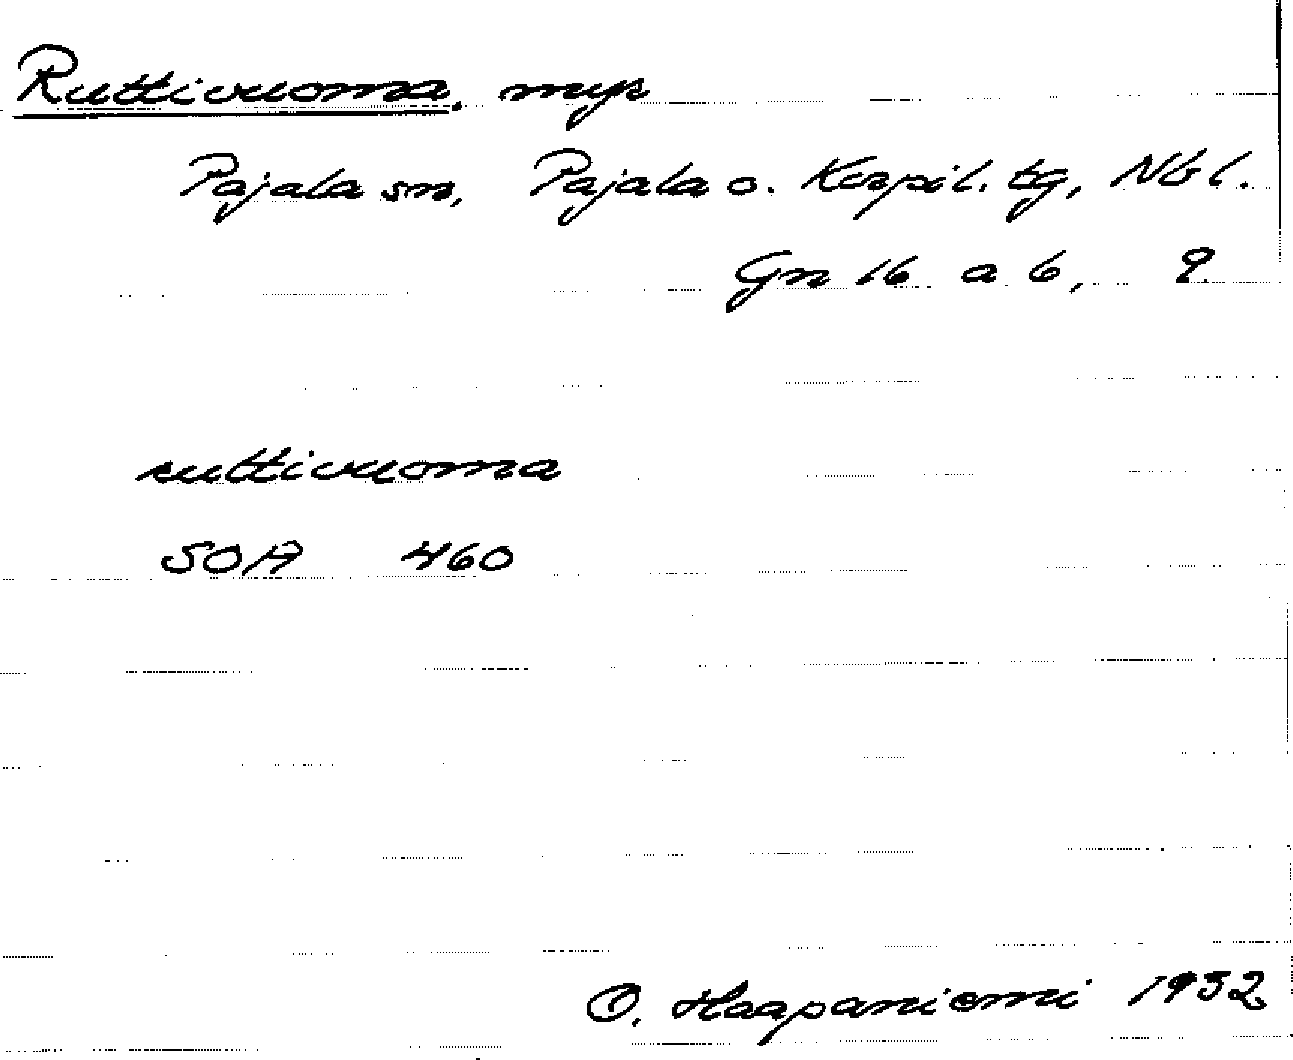 Ruttivuoma, myr
Pajala sn, Pajala o. Korpil. tg, Nbl.
Gn 16 a 6, 9
ruttivuoma
SOA 460
O. Haapaniemi 1932